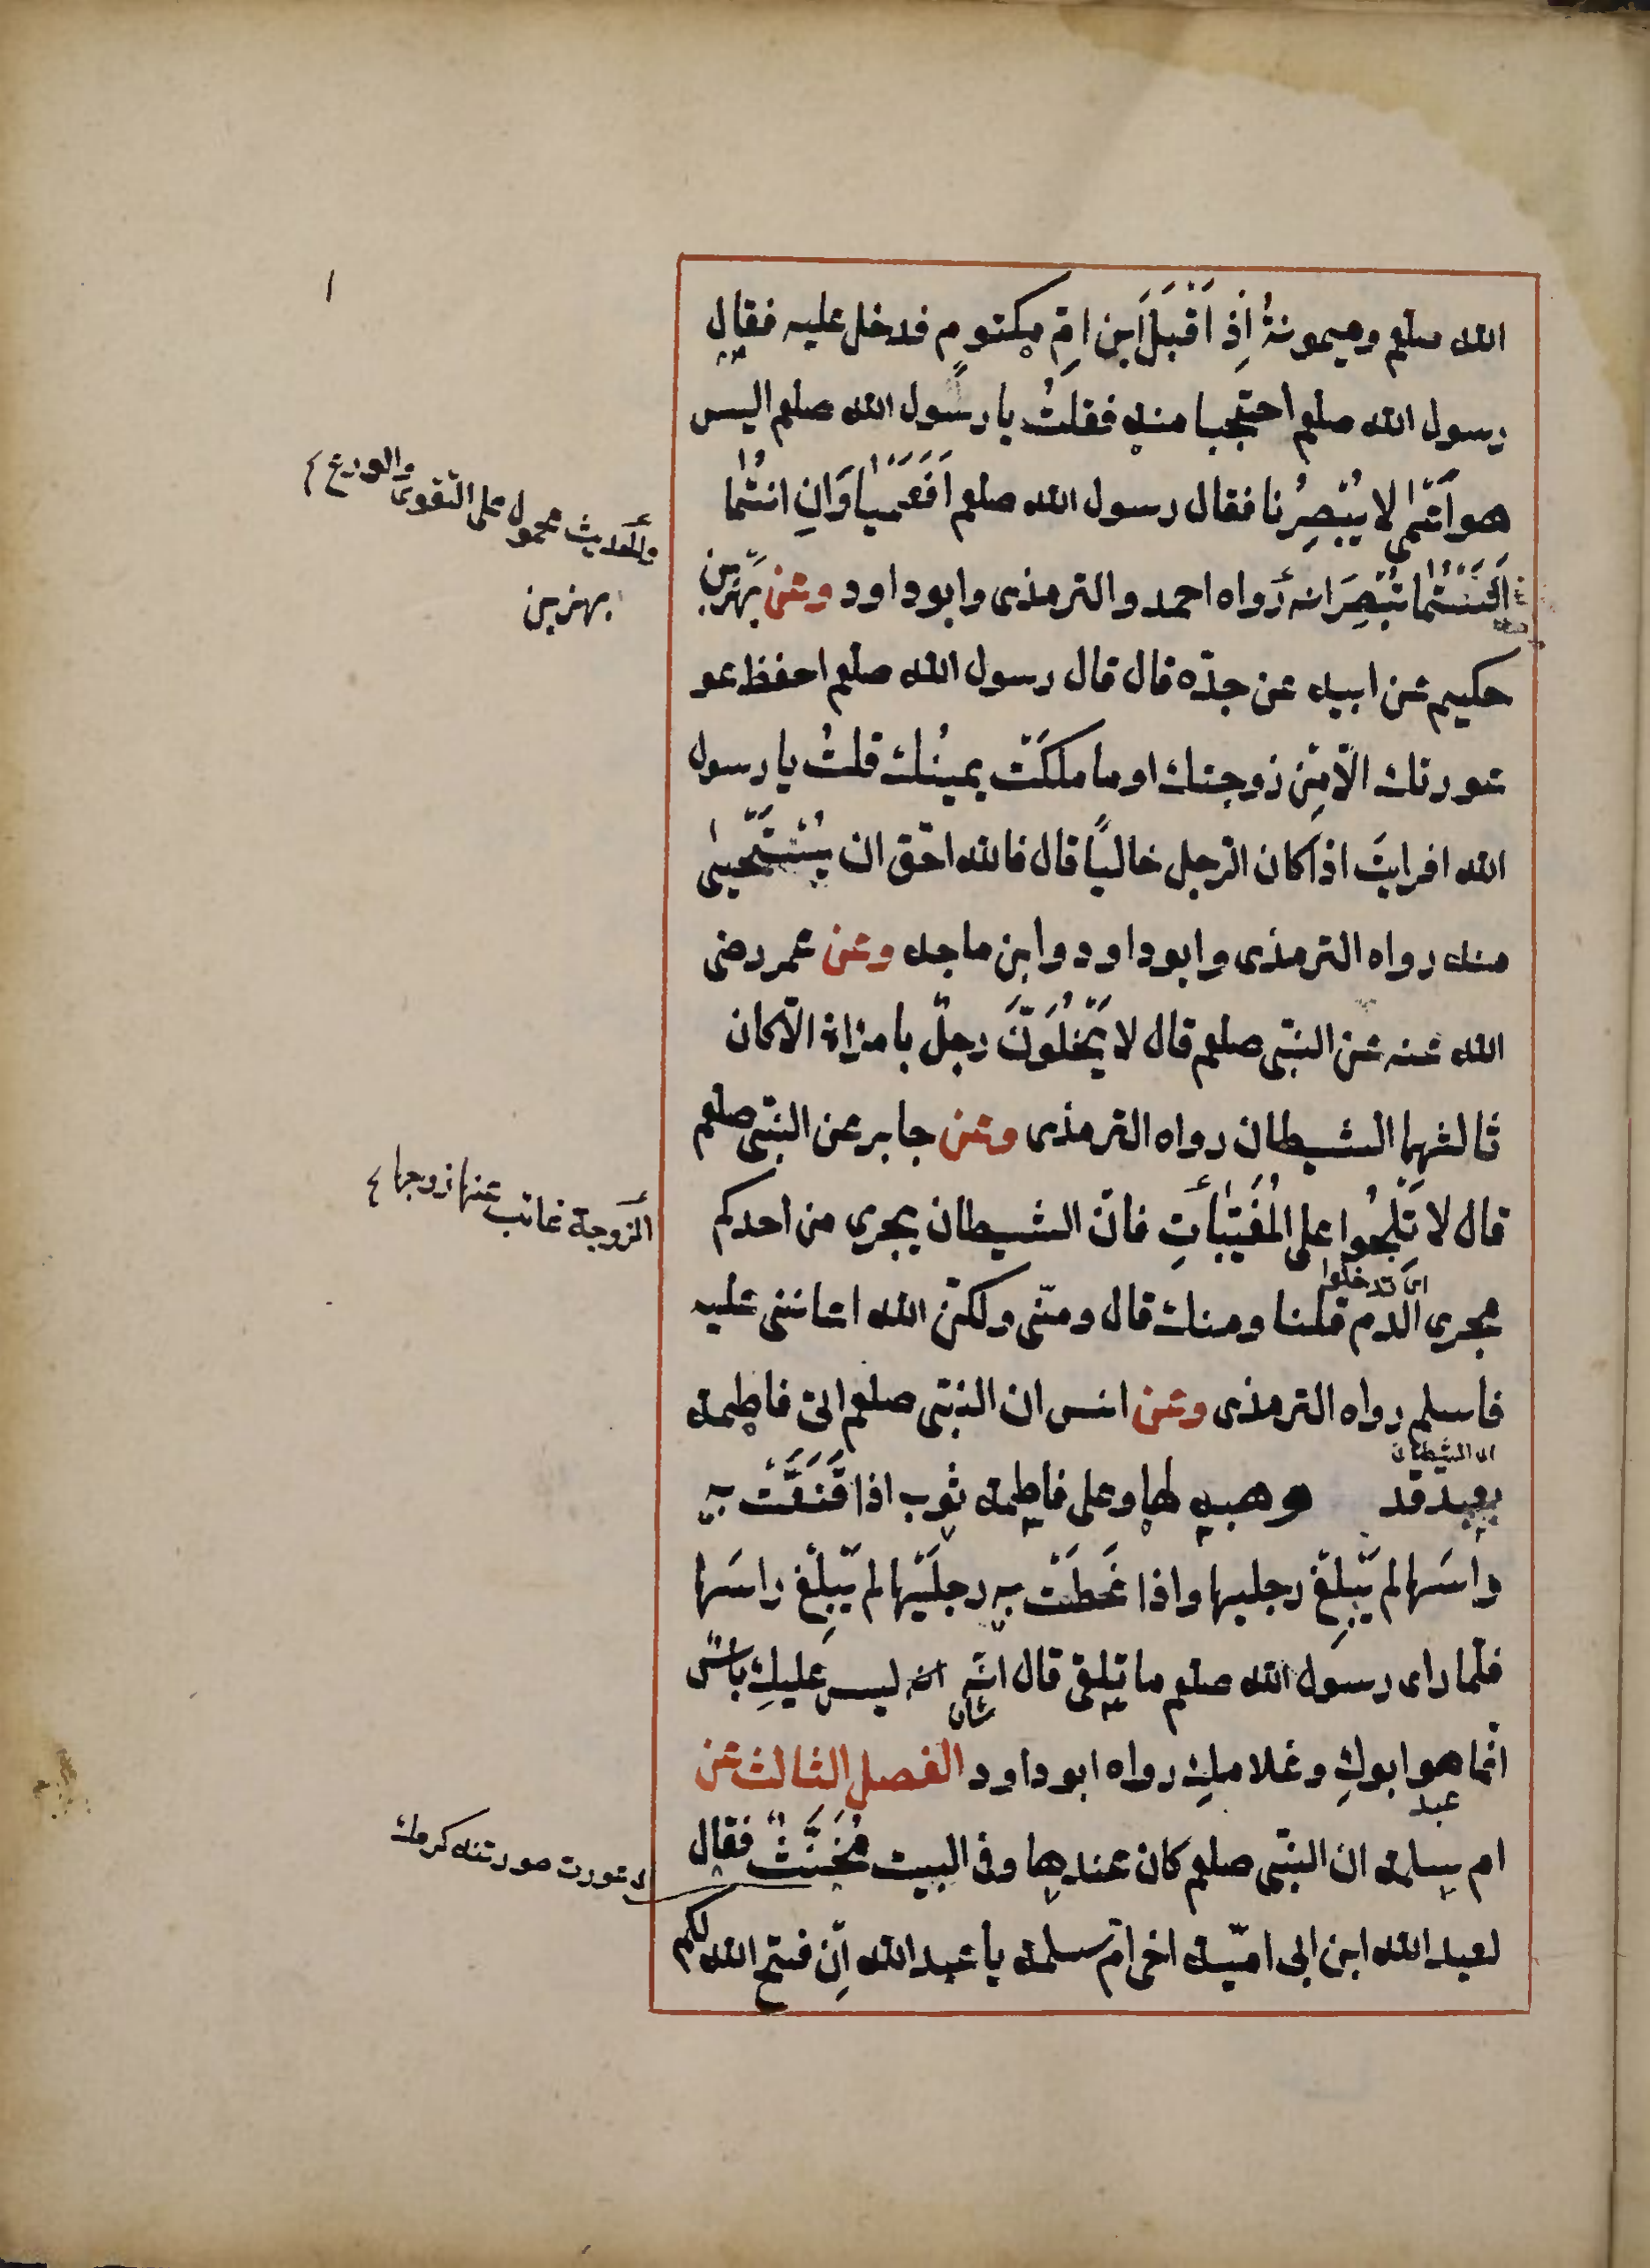 الله صلعم وميمونةُ اِذ اَقْبَلَ اَبن امِّ مكتومٍ فدخل عليه فقال
رسول الله صلعم احتجبا منه فقلتُ يا رسول الله صلعم اليس
هو اَعمى لا يُبْصِرُنا فقال رسول الله صلعم اَفَعَمْيَا وَانِ انتُما
اَلَسْتُما تُبْصِرَانه رَواه احمد والترمذى وابو داود وعن بَهْزِبن
حكيم عن ابيه عن جدّه قال قال رسول الله صلعم احفظ عو
عورتك الّا مِنْ زوجتك او ما ملكَتْ يمينُك قلتُ يا رسول
الله افرايتَ اذا كان الرّجل خاليًا قال فالله احّق ان يُسْتَحيىٰ
منه رواه الترمذى وابو داود وابن ماجه وعن عمر رضى
الله عنه عن النبّى صلعم قال لا يَخْلُوَنَّ رجلٌ بامرْاة الّا كان
ثالثهما الشيطان رواه الترمذى وعن جابر عن النبّى صلعم
قال لا تَلِجُوا على المُغَيّبٰاتِ فانّ الشيطان يجرى من احدكم
اى تدخلوا
مجرى الدّم قلنا ومنك قال ومنّى ولكنّ الله اعاننى عليه
فاسلم رواه الترمذى وعن انس ان النبّى صلعم اتى فاطمة
اى الشيطان
بعبد قد وهبه لها وعلى فاطمة ثوب اذا قَنَّعَتْ به
راسَها لم يَبْلِغْ رجليها واذا غَطَّتْ به رجلَيْها لم يَبْلِغْ راسَها
فلمّا راى رسول الله صلعم ما تلقى قال انّه انه ليس عليكِ باسٌ
شان
انّما هو ابوكِ وغلامكِ رواه ابو داود الفصل الثالث عن
عبد
ام سلمة ان النبّى صلعم كان عندها وفى البيت مُخَنَّثٌ فقال
لعبد الله ابن ابى اميّة اخى امّ سلمة يا عبد الله اِنْ فتح الله لكم
والحديث محمول على التّقوى والورع
بهز بن
الزوجة غائب عنها زوجها